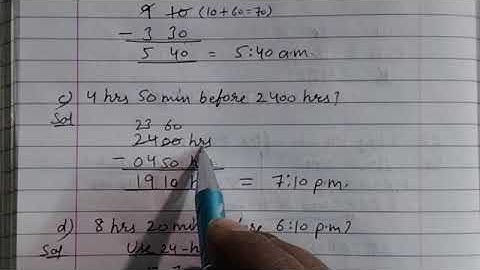 9 10 (10+60=70)
- 3 30
5 40 = 5:40 a.m.
c) 4 hrs 50 min before 2400 hrs?
Sol
23 60
2400 hrs
- 0450 h
1910 h = 7:10 p.m.
d) 8 hrs 20 min before 6:10 p.m?
Sol Use 24-h